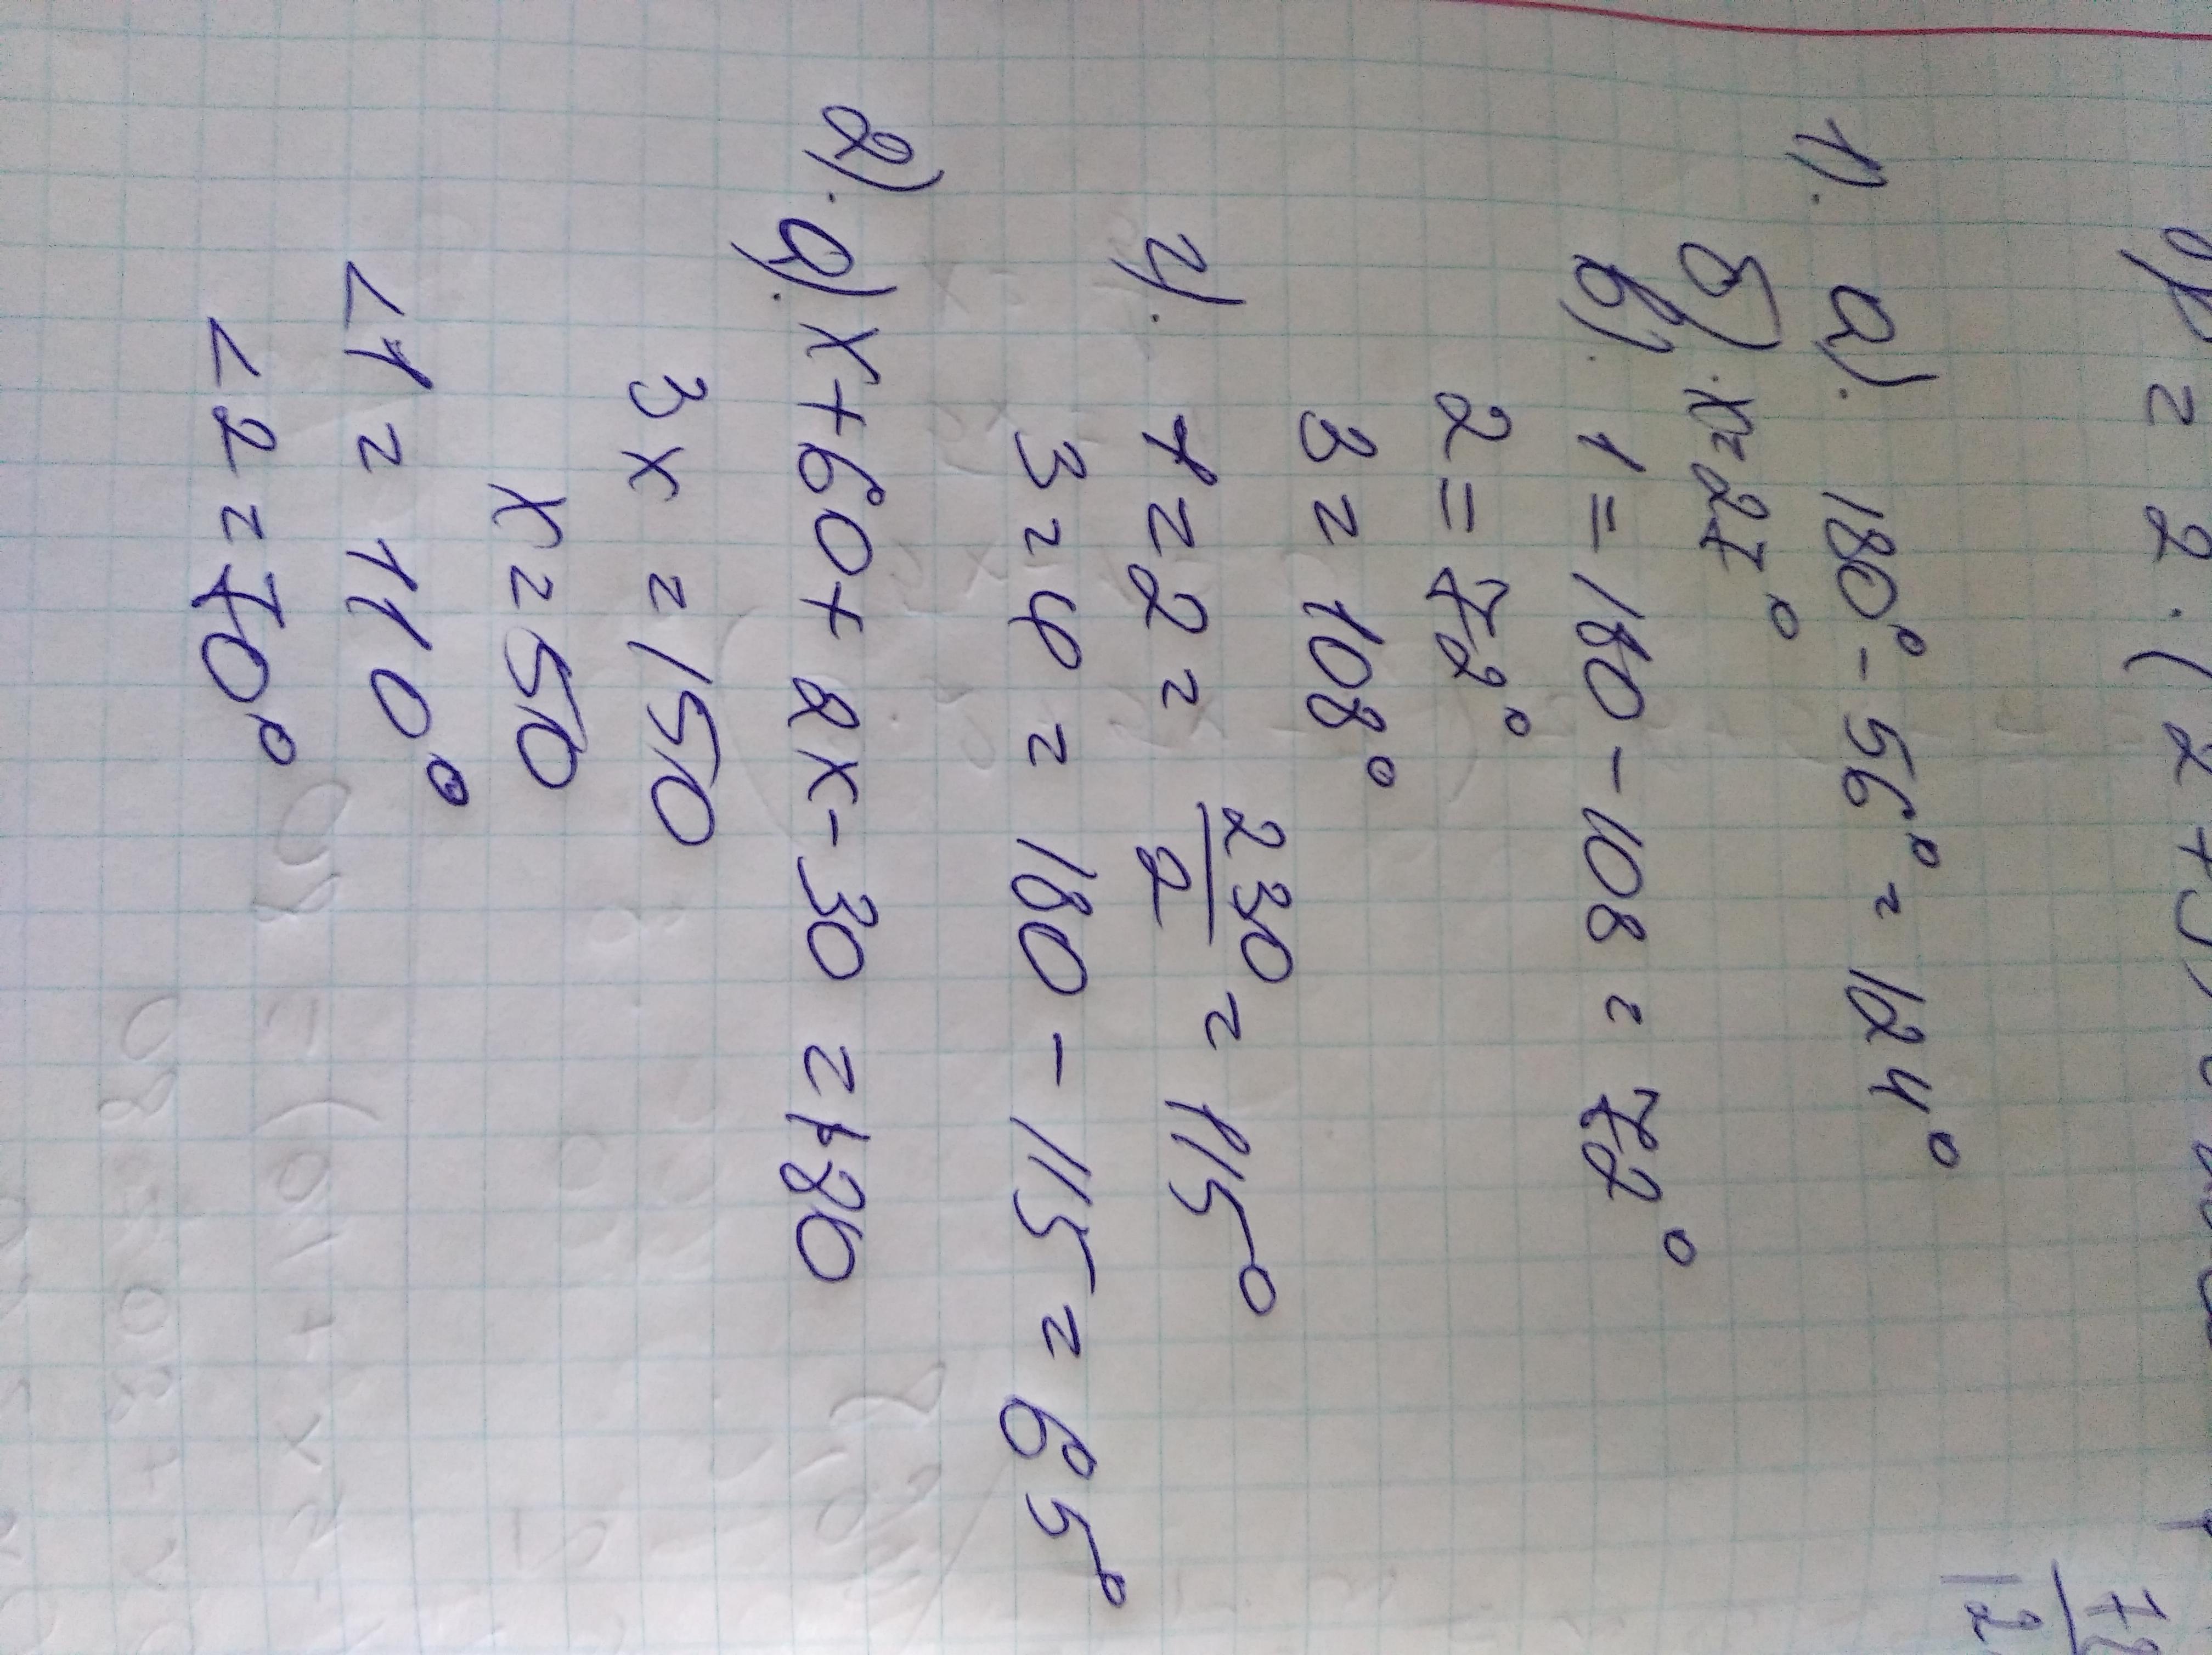 P = 2 · (2 +
1). а). 180° - 56° = 124°
б). x = 27°
в). 1 = 180 - 108 = 72°
2 = 72°
3 = 108°
г). 1 = 2 = 230/2 = 115°
3 = 4 = 180 - 115 = 65°
2). а). x + 60 + 2x - 30 = 180
3x = 150
x = 50
<1 = 110°
<2 = 70°